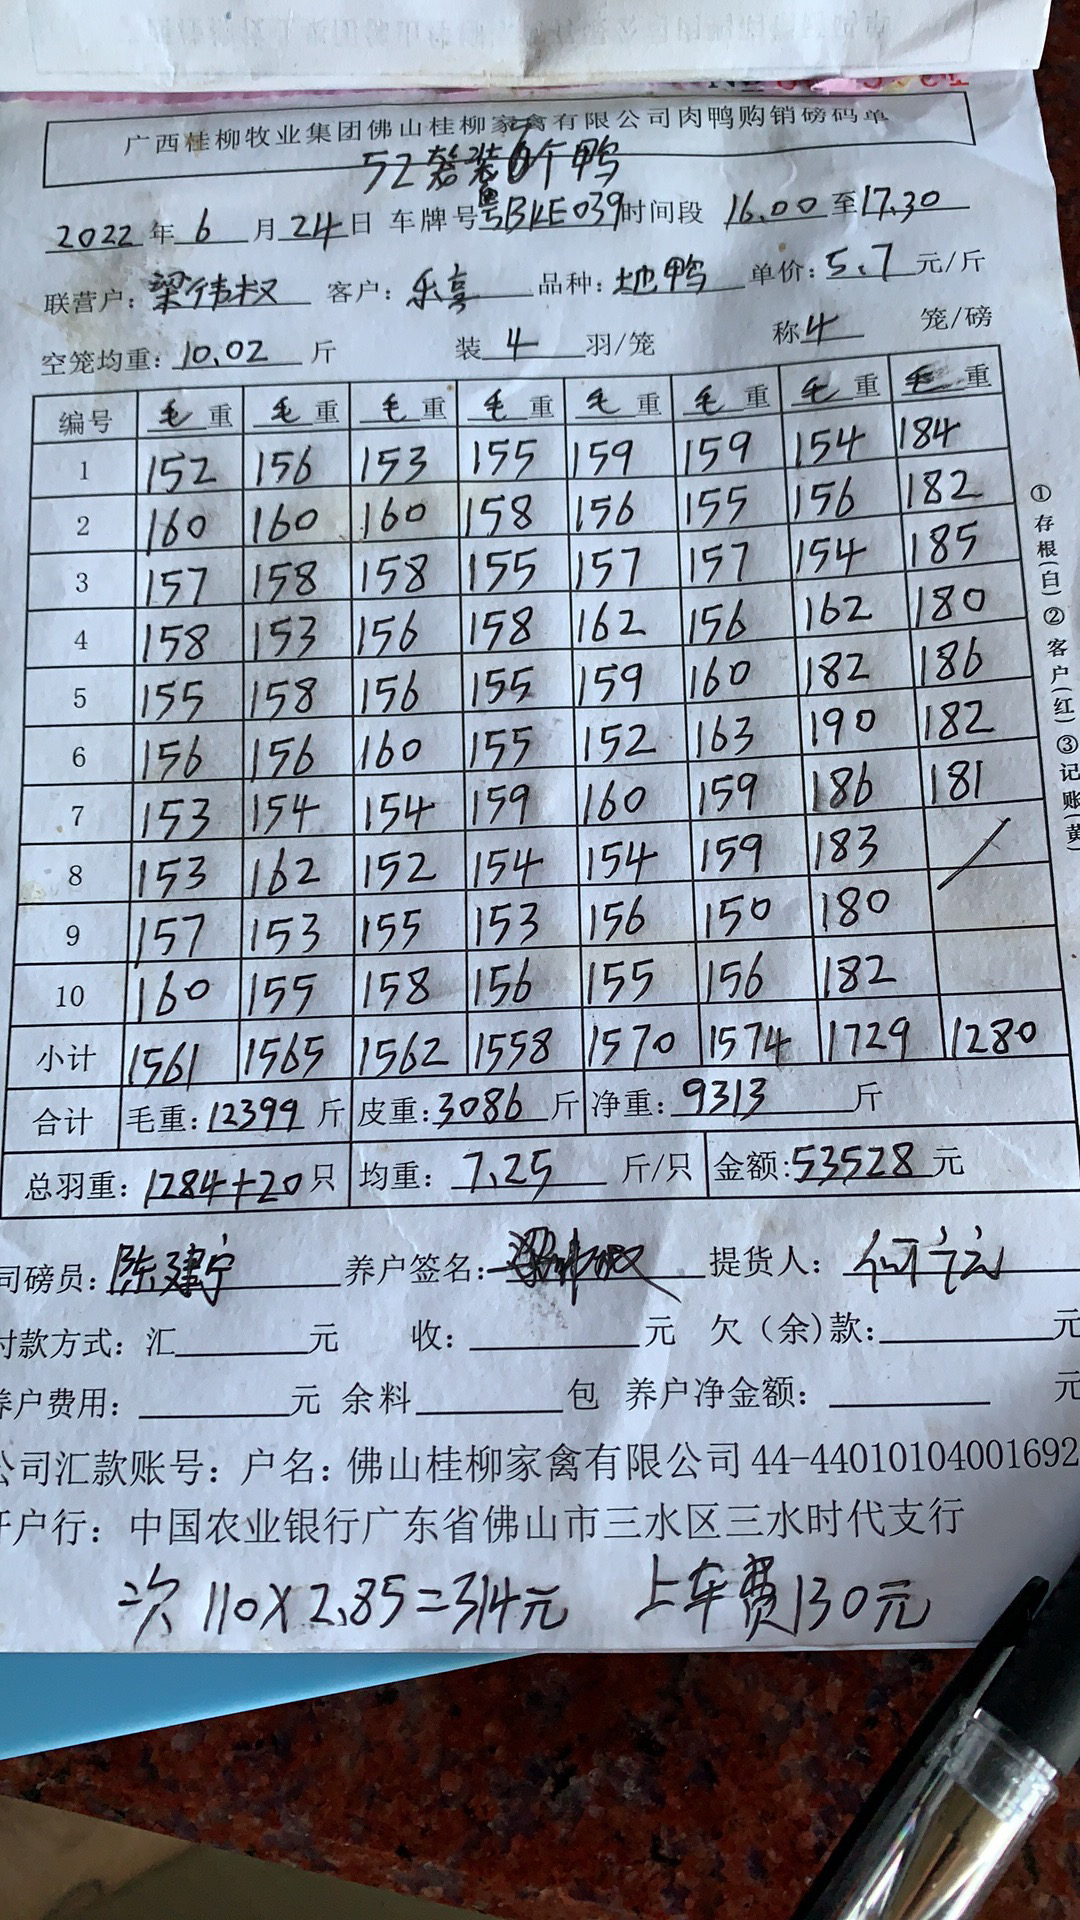 广西桂柳牧业集团佛山桂柳家禽有限公司肉鸭购销磅码单
52笼装个鸭
2022年6月24日 车牌号粤BKE039时间段 16.00至17.30
联营户: 梁伟权 客户: 乐享 品种: 地鸭 单价: 5.7元/斤
空笼均重: 10.02斤 装4羽/笼 称4笼/磅
编号 毛重 毛重 毛重 毛重 毛重 毛重 毛重 毛重
1 152 156 153 155 159 159 154 184
2 160 160 160 158 156 155 156 182
3 157 158 158 155 157 157 154 185
4 158 153 156 158 162 156 162 180
5 155 158 156 155 159 160 182 186
6 156 156 160 155 152 163 190 182
7 153 154 154 159 160 159 186 181
8 153 162 152 154 154 159 183
9 157 153 155 153 156 150 180
10 160 155 158 156 155 156 182
小计 1561 1565 1562 1558 1570 1574 1729 1280
合计 毛重: 12399斤 皮重: 3086斤 净重: 9313斤
总羽重: 1284+20只 均重: 7.25斤/只 金额: 53528元
司磅员: 陈建宁 养户签名: 提货人:
付款方式: 汇 元 收: 元 欠(余)款: 元
养户费用: 元 余料 包 养户净金额: 元
公司汇款账号: 户名: 佛山桂柳家禽有限公司 44-44010104001692
开户行: 中国农业银行广东省佛山市三水区三水时代支行
二次 110X2.85=314元 上车费130元
①存根(白)②客户(红)③记账(黄)